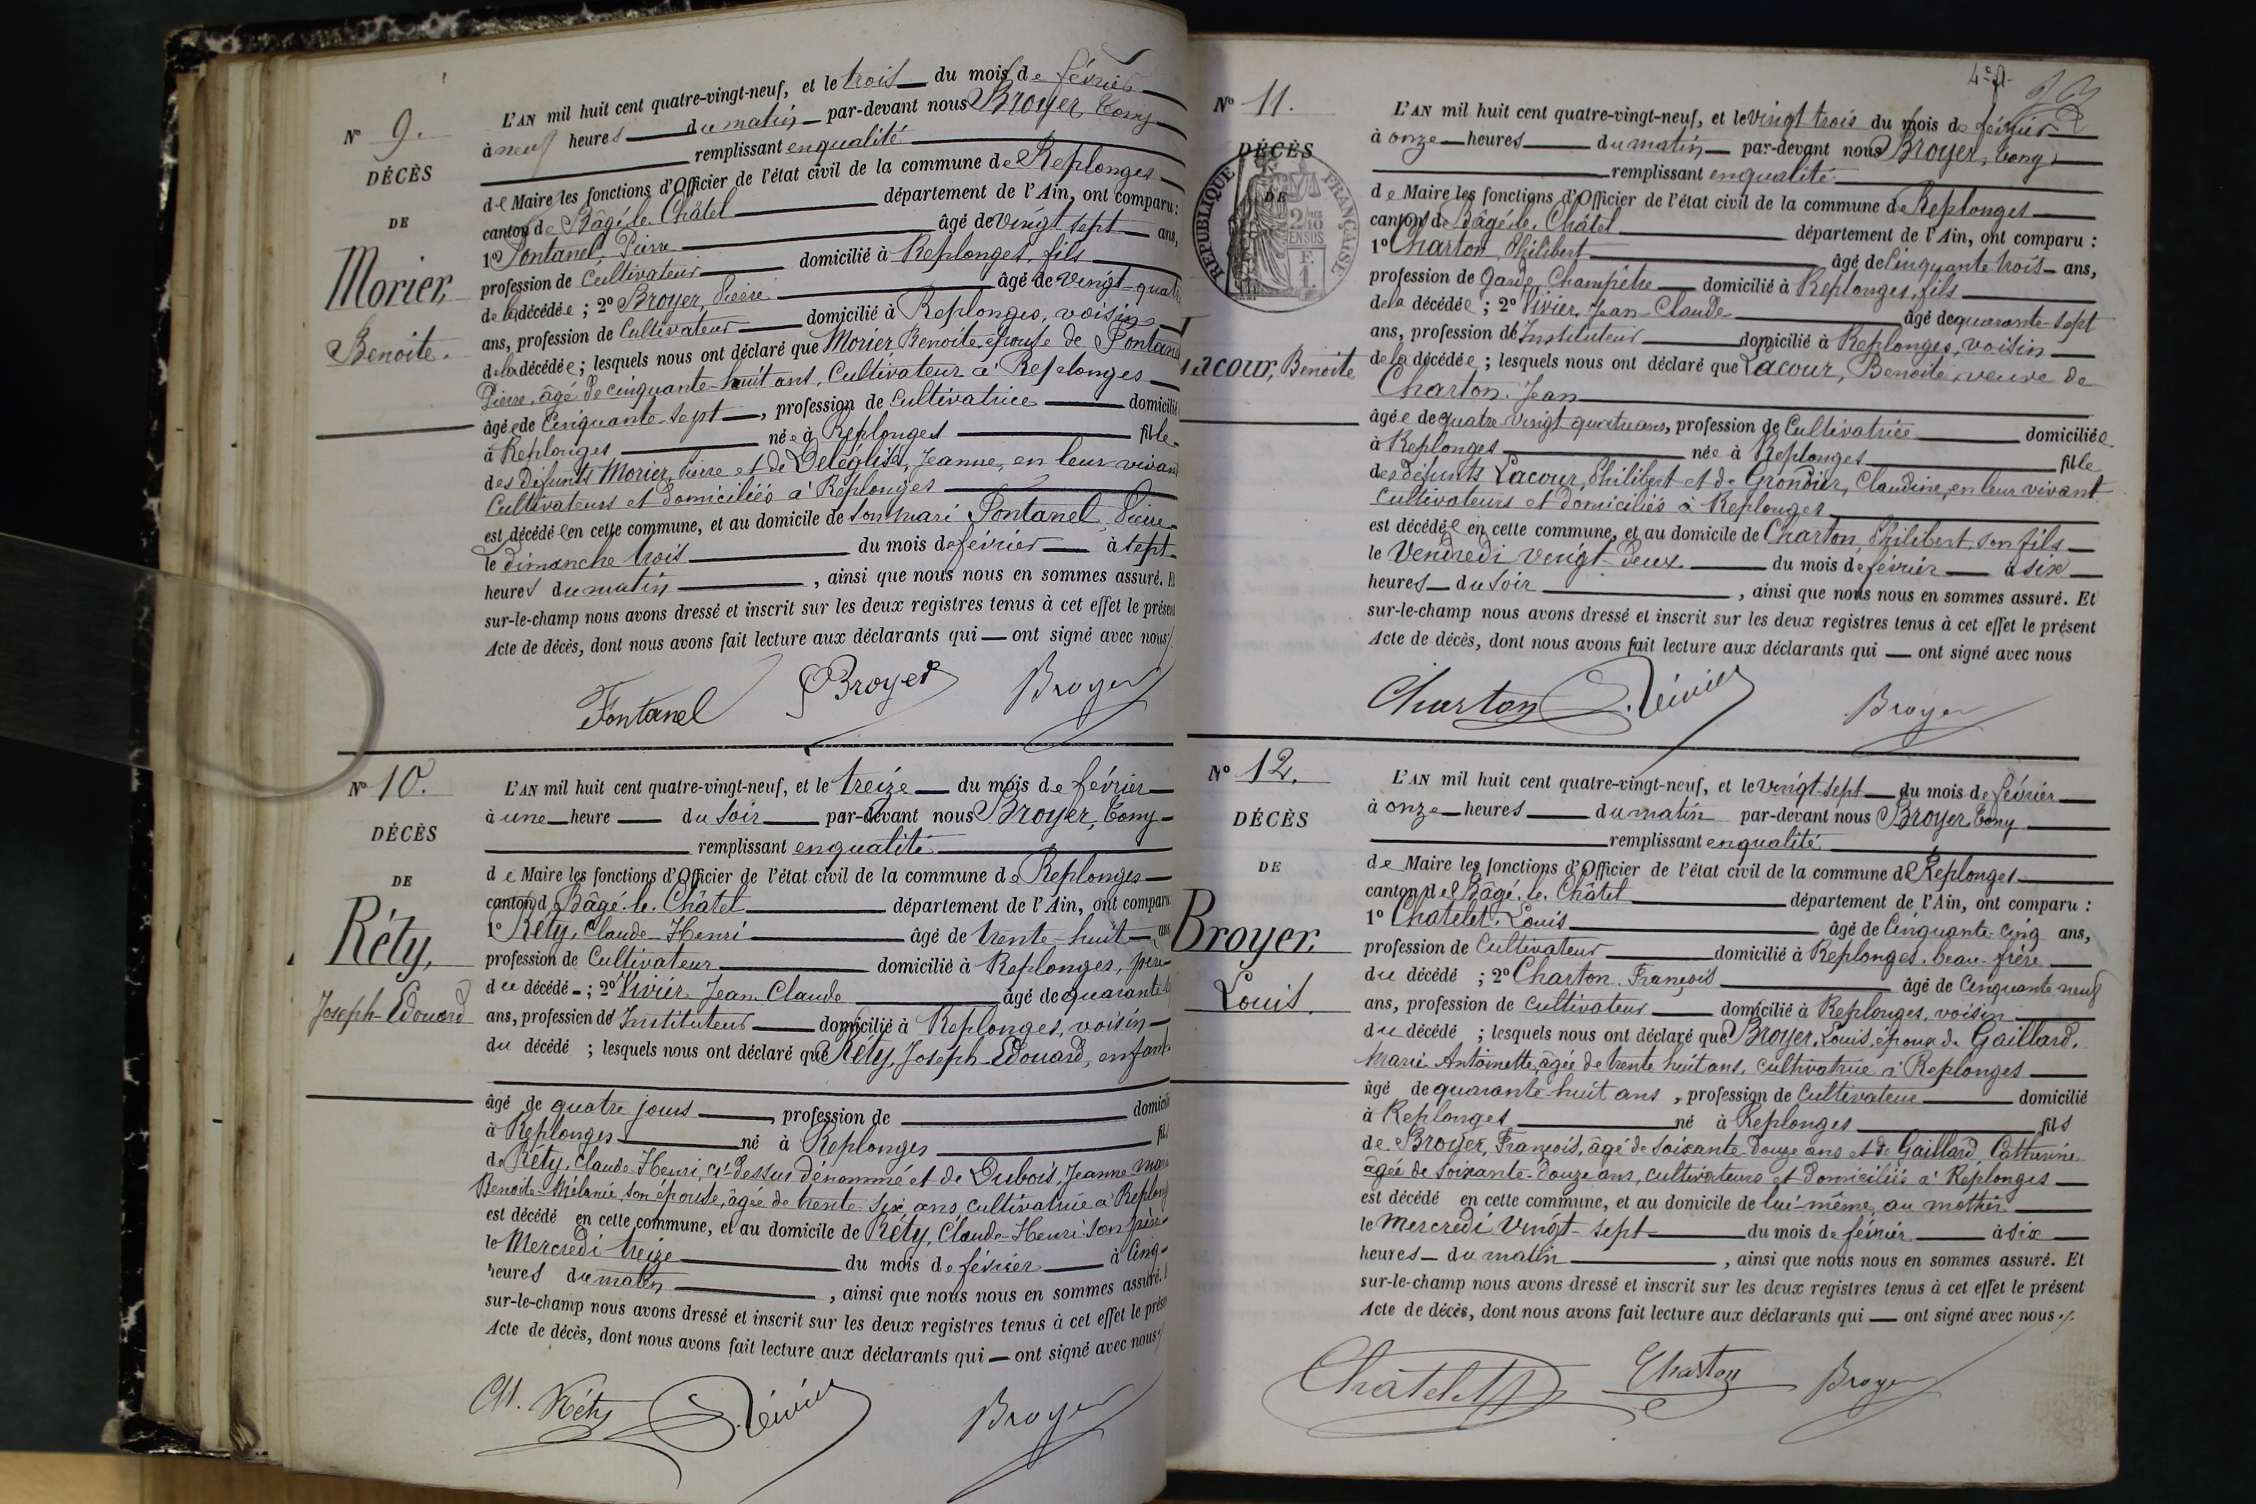 N° 9.
DÉCÈS
DE
Morier,
Benoite.
L'AN mil huit cent quatre-vingt-neuf, et le trois du mois de février
à neuf heures du matin par-devant nous Broyer, Tony
remplissant en qualité
de Maire les fonctions d'Officier de l'état civil de la commune de Replonges
canton de Bâgé-le-Châtel département de l'Ain, ont comparu :
1° Fontanel, Pierre âgé de vingt sept ans,
profession de Cultivateur domicilié à Replonges, fils
de la décédée ; 2° Broyer, Pierre âgé de vingt-quatre
ans, profession de Cultivateur domicilié à Replonges, voisin
de la décédée ; lesquels nous ont déclaré que Morier, Benoite, épouse de Fontanel
Pierre, âgé de cinquante-huit ans, Cultivateur à Replonges
âgée de Cinquante-sept, profession de Cultivatrice domicilié
à Replonges née à Replonges fille
des défunts Morier, Pierre et de Deléglise, Jeanne, en leur vivant
Cultivateurs et domiciliés à Replonges
est décédée en cette commune, et au domicile de son mari Fontanel, Pierre
le dimanche trois du mois de février à sept
heures du matin, ainsi que nous nous en sommes assuré. Et
sur-le-champ nous avons dressé et inscrit sur les deux registres tenus à cet effet le présent
Acte de décès, dont nous avons fait lecture aux déclarants qui — ont signé avec nous
Fontanel Broyer Broyer
N° 10.
DÉCÈS
DE
Réty,
Joseph-Edouard
L'AN mil huit cent quatre-vingt-neuf, et le treize du mois de février
à une heure du soir par-devant nous Broyer, Tony
remplissant en qualité
de Maire les fonctions d'Officier de l'état civil de la commune de Replonges
canton d Bâgé-le-Châtel département de l'Ain, ont comparu
1° Réty, Claude-Henri âgé de trente-huit ans
profession de Cultivateur domicilié à Replonges, père
du décédé ; 2° Vivier, Jean Claude âgé de quarante
ans, profession de Instituteur domicilié à Replonges, voisin
du décédé ; lesquels nous ont déclaré que Réty, Joseph-Edouard, enfant
âgé de quatre jours, profession de domicilié
à Replonges né à Replonges fils
de Réty, Claude-Henri, ci-dessus dénommé et de Dubois, Jeanne Marie
Benoite-Mélanie, son épouse, âgée de trente-six ans, cultivatrice à Replonges
est décédé en cette commune, et au domicile de Réty, Claude-Henri son père
le Mercredi treize du mois de février à Cinq
heures du matin, ainsi que nous nous en sommes assuré.
sur-le-champ nous avons dressé et inscrit sur les deux registres tenus à cet effet le présent
Acte de décès, dont nous avons fait lecture aux déclarants qui — ont signé avec nous
CH. Réty Vivier Broyer
N° 11.
DÉCÈS
DE
RÉPUBLIQUE FRANÇAISE
Lacour, Benoite
L'AN mil huit cent quatre-vingt-neuf, et le vingt trois du mois de février
à onze heures du matin par-devant nous Broyer, Tony
remplissant en qualité
de Maire les fonctions d'Officier de l'état civil de la commune de Replonges
canton de Bâgé-le-Châtel département de l'Ain, ont comparu :
1° Charton, Philibert âgé de Cinquante trois ans,
profession de Garde Champêtre domicilié à Replonges, fils
de la décédée ; 2° Vivier, Jean-Claude âgé de quarante-sept
ans, profession de Instituteur domicilié à Replonges, voisin
de la décédée ; lesquels nous ont déclaré que Lacour, Benoite, veuve de
Charton, Jean
âgée de quatre-vingt quatre ans, profession de Cultivatrice domiciliée
à Replonges née à Replonges fille
des défunts Lacour, Philibert et de Grondier, Claudine, en leur vivant
Cultivateurs et domiciliés à Replonges
est décédée en cette commune, et au domicile de Charton, Philibert, son fils
le Vendredi vingt-deux du mois de février à six
heures du soir, ainsi que nous nous en sommes assuré. Et
sur-le-champ nous avons dressé et inscrit sur les deux registres tenus à cet effet le présent
Acte de décès, dont nous avons fait lecture aux déclarants qui — ont signé avec nous
Charton Vivier Broyer
N° 12.
DÉCÈS
DE
Broyer,
Louis.
L'AN mil huit cent quatre-vingt-neuf, et le vingt-sept du mois de février
à onze heures du matin par-devant nous Broyer, Tony
remplissant en qualité
de Maire les fonctions d'Officier de l'état civil de la commune de Replonges
canton de Bâgé-le-Châtel département de l'Ain, ont comparu :
1° Chatelet, Louis âgé de Cinquante-cinq ans,
profession de Cultivateur domicilié à Replonges, beau-frère
du décédé ; 2° Charton, François âgé de Cinquante neuf
ans, profession de Cultivateur domicilié à Replonges, voisin
du décédé ; lesquels nous ont déclaré que Broyer, Louis, époux de Gaillard,
Marie Antoinette, âgée de trente huit ans, cultivatrice à Replonges
âgé de quarante-huit ans, profession de Cultivateur domicilié
à Replonges né à Replonges fils
de Broyer, François, âgé de soixante-douze ans et de Gaillard Catherine
âgée de soixante-douze ans, cultivateurs et domiciliés à Replonges
est décédé en cette commune, et au domicile de lui-même, au mothier
le Mercredi vingt-sept du mois de février à six
heures du matin, ainsi que nous nous en sommes assuré. Et
sur-le-champ nous avons dressé et inscrit sur les deux registres tenus à cet effet le présent
Acte de décès, dont nous avons fait lecture aux déclarants qui — ont signé avec nous
Châtelet Charton Broyer